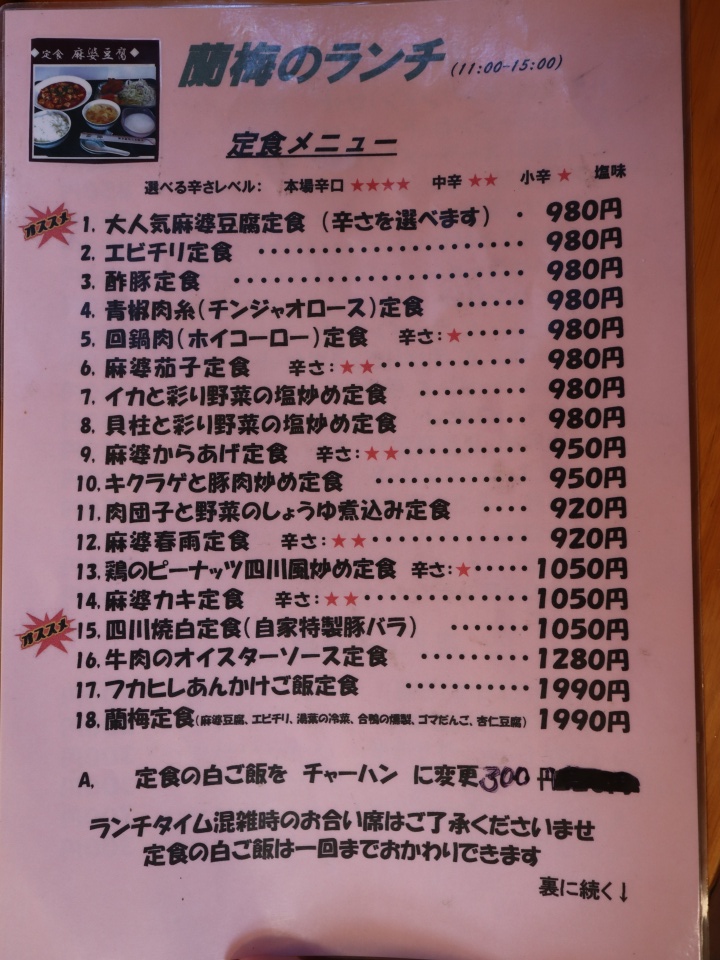 ◆定食 麻婆豆腐◆
蘭梅のランチ (11:00-15:00)
定食メニュー
選べる辛さレベル： 本場辛口 ★★★★ 中辛 ★★ 小辛 ★ 塩味
オススメ
1. 大人気麻婆豆腐定食 (辛さを選べます) ・ 980円
2. エビチリ定食 ・・・・・・・・・・・・・・・・・・・・・・ 980円
3. 酢豚定食 ・・・・・・・・・・・・・・・・・・・・・・ 980円
4. 青椒肉糸(チンジャオロース)定食 ・・・・・・ 980円
5. 回鍋肉(ホイコーロー)定食 辛さ:★・・・・・ 980円
6. 麻婆茄子定食 辛さ:★★・・・・・・・・・・・ 980円
7. イカと彩り野菜の塩炒め定食 ・・・・・・・・・ 980円
8. 貝柱と彩り野菜の塩炒め定食 ・・・・・・・・ 980円
9. 麻婆からあげ定食 辛さ:★★・・・・・・・・・ 950円
10. キクラゲと豚肉炒め定食 ・・・・・・・・・・・・・ 950円
11. 肉団子と野菜のしょうゆ煮込み定食 ・・・・ 920円
12. 麻婆春雨定食 辛さ:★★・・・・・・・・・・・ 920円
13. 鶏のピーナッツ四川風炒め定食 辛さ:★・・・・・ 1050円
14. 麻婆カキ定食 辛さ:★★・・・・・・・・・・・・ 1050円
オススメ
15. 四川焼白定食(自家特製豚バラ) ・・・・・・・ 1050円
16. 牛肉のオイスターソース定食 ・・・・・・・・・ 1280円
17. フカヒレあんかけご飯定食 ・・・・・・・・・・・ 1990円
18. 蘭梅定食(麻婆豆腐、エビチリ、湯葉の冷菜、合鴨の燻製、ゴマだんご、杏仁豆腐) 1990円
A. 定食の白ご飯を チャーハン に変更300 円
ランチタイム混雑時のお合い席はご了承くださいませ
定食の白ご飯は一回までおかわりできます
裏に続く↓